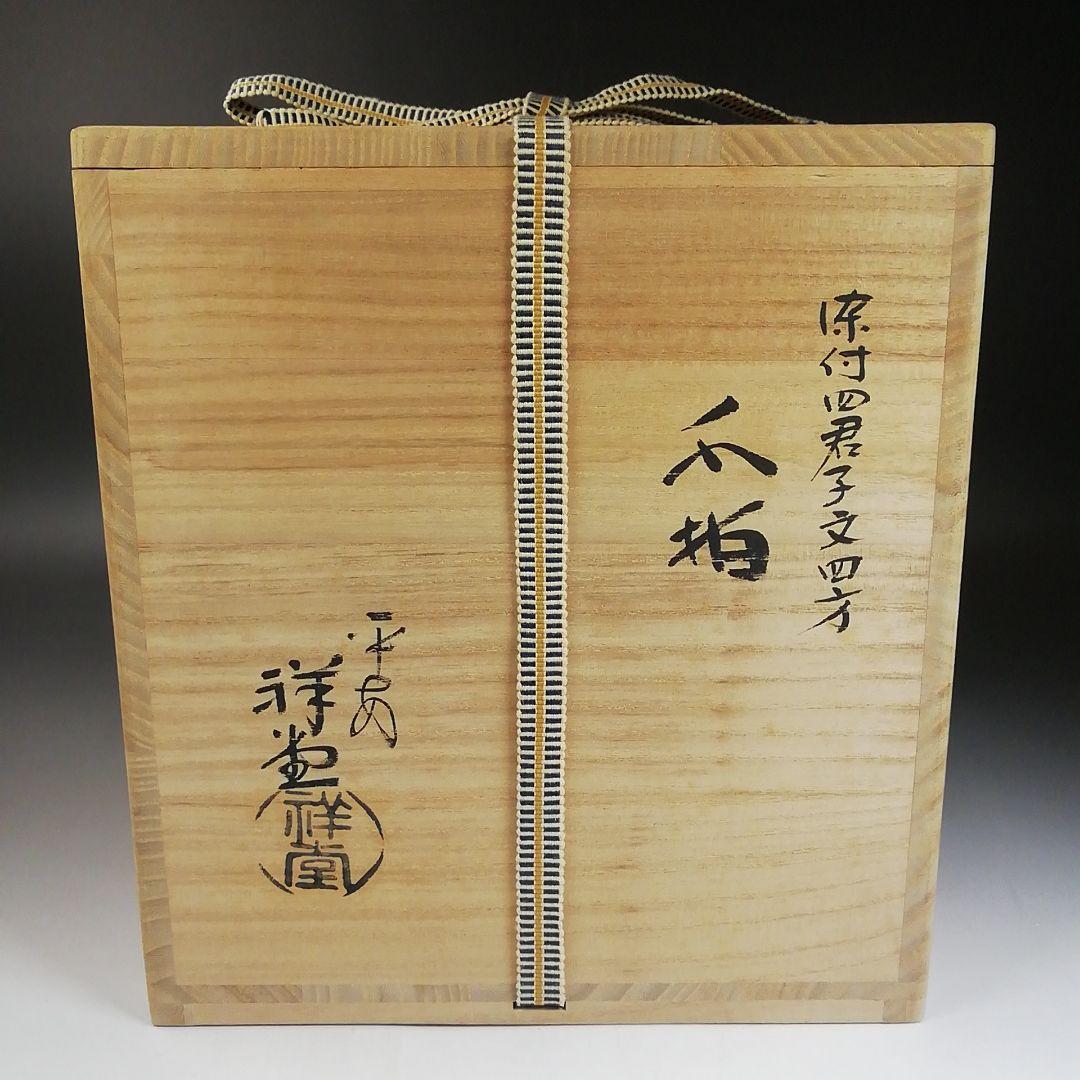 染付四君子文四方
水指
平安
祥堂
祥堂